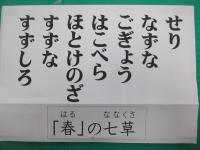 せり
なずな
ごぎょう
はこべら
ほとけのざ
すずな
すずしろ
「春」の七草
はる
ななくさ